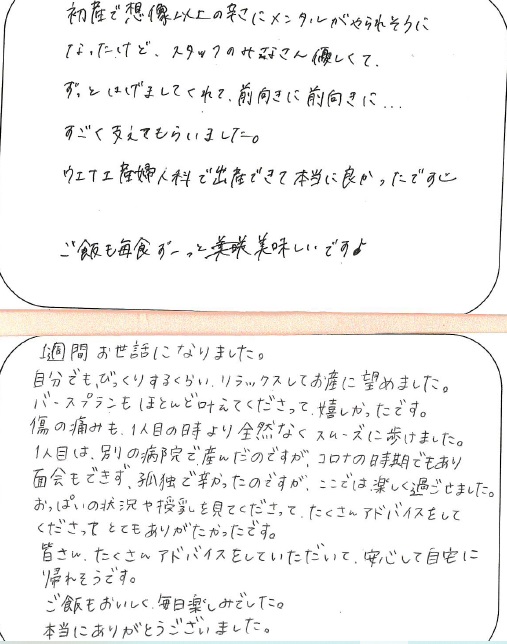 初産で想像以上の辛さにメンタルがやられそうに
なったけど、スタッフのみなさん優しくて、
ずっとはげましてくれて、前向きに前向きに...
すごく支えてもらいました。
ウエナエ産婦人科で出産できて本当に良かったです
ご飯も毎食ずーっと美味しいです♪
1週間お世話になりました。
自分でも、びっくりするくらい、リラックスしてお産に望めました。
バースプランもほとんど叶えてくださって、嬉しかったです。
傷の痛みも、1人目の時より全然なくスムーズに歩けました。
1人目は、別の病院で、産んだのですが、コロナの時期でもあり
面会もできず、孤独で辛かったのですが、ここでは楽しく過ごせました。
おっぱいの状況や授乳を見てくださって、たくさんアドバイスをして
くださって とてもありがたかったです。
皆さん、たくさんアドバイスをしていただいて、安心して自宅に
帰れそうです。
ご飯もおいしく、毎日楽しみでした。
本当にありがとうございました。